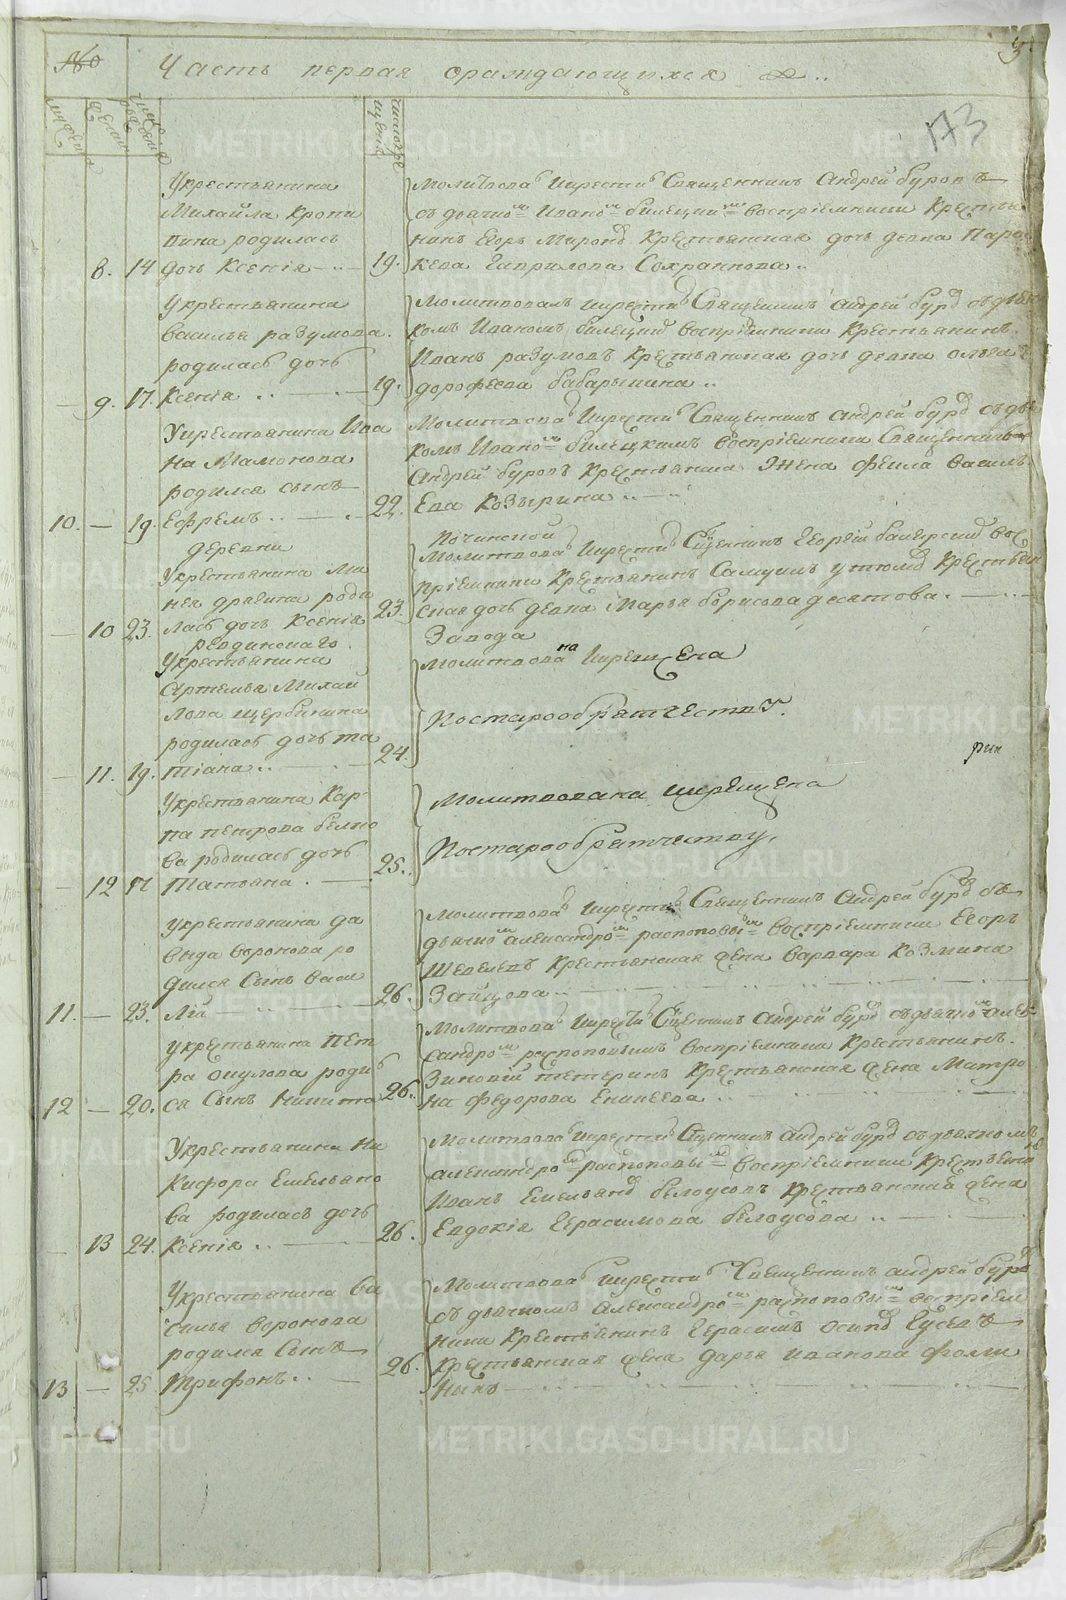 3.
№ Часть первая ораждающихся
173
Укрестьянина
Михайла Кропи
вина родилась
8. 14 дочь Ксенiя 19.
Молитвовал и крестил Священникъ Андрей Буровъ
съ дьячком Иваном Билецким воспрiемники Крестья
нинъ Егоръ Миронов Крестьянская дочь девка Парас
кева Гаврилова Сохраннова
Укрестьянина
Василья разумова
родилась дочь
9. 17. Ксенiя 19.
Молитвовалъ и крестил Священникъ Андрей Буров съ дьяч
комъ Иваномъ Билецким воспрiемники Крестьянинъ
Иванъ разумовъ Крестьянская дочь девка
дорофеева бабарыкина
Укрестьянина Ива
на Мамонова
родился сынъ
10. — 19. Ефремъ 22.
Молитвовал и крестил Священникъ Андрей Буров съ дья
комъ Иваном Билецкимъ воспрiемники Священникъ
Андрей Буровъ Крестьянина Жена феила василь
Ева Козырина
деревни
Укрестьянина
роди
10 23. лась дочь Ксенiя 23.
Починской
Молитвовал и крестил Сщенникъ Георгiй вос
прiемники Крестьянинъ Самуилъ утюмов Крестьян
ская дочь девка Марья борисова десятова
Ревдинскаго
Укрестьянина
Артемья Михай
лова щербинина
родилась дочь та
11. 19. тiана 24.
Завода
Молитвована и крещена
Постарообрятчеству.
рии
Укрестьянина Кар
па петрова белно
ва родилась дочь
12 17 Татьяна 25.
Молитвована и крещена
Постарообрятчеству,
Укрестьянина да
выда воронова ро
дился Сынъ васи
11. — 23. лiй 26.
Молитвовал и крестил Священникъ Андрей Буров съ
дьячком александром распоповым воспрiемники Егоръ
Шевелевъ Крестьянская Жена варвара Козмина
Зайцова
Укрестьянина Пет
ра окулова родил
12 — 20. ся Сынъ Никита 26.
Молитвовал и крестил Сщенникъ Андрей Буров съ дьячком алек
сандром распоповымъ воспрiемники Крестьянинъ
Зиновiй тетеринъ Крестьянская Жена Матро
на федорова Еникеева
Укрестьянина Ни
Кифора Емельяно
ва родилась дочь
13 24. Ксенiя 26.
Молитвовал и крестил Сщенникъ Андрей Буров съ дьячкомъ
александром распоповым воспрiемники Крестьянинъ
Иванъ Емельянов белоусовъ Крестьянская Жена
Евдокiя Герасимова белоусова
Укрестьянина ва
силья воронова
родился Сынъ
13 — 25 Трифонъ 26.
Молитвовал и крестил Священникъ андрей Буров
съ дьячкомъ Александром распоповым воспрiем
ники Крестьянинъ Герасимъ осипов Гусевъ
Крестьянская Жена дарья иванова фоми
ныхъ
METRIKI.GASO-URAL.RU